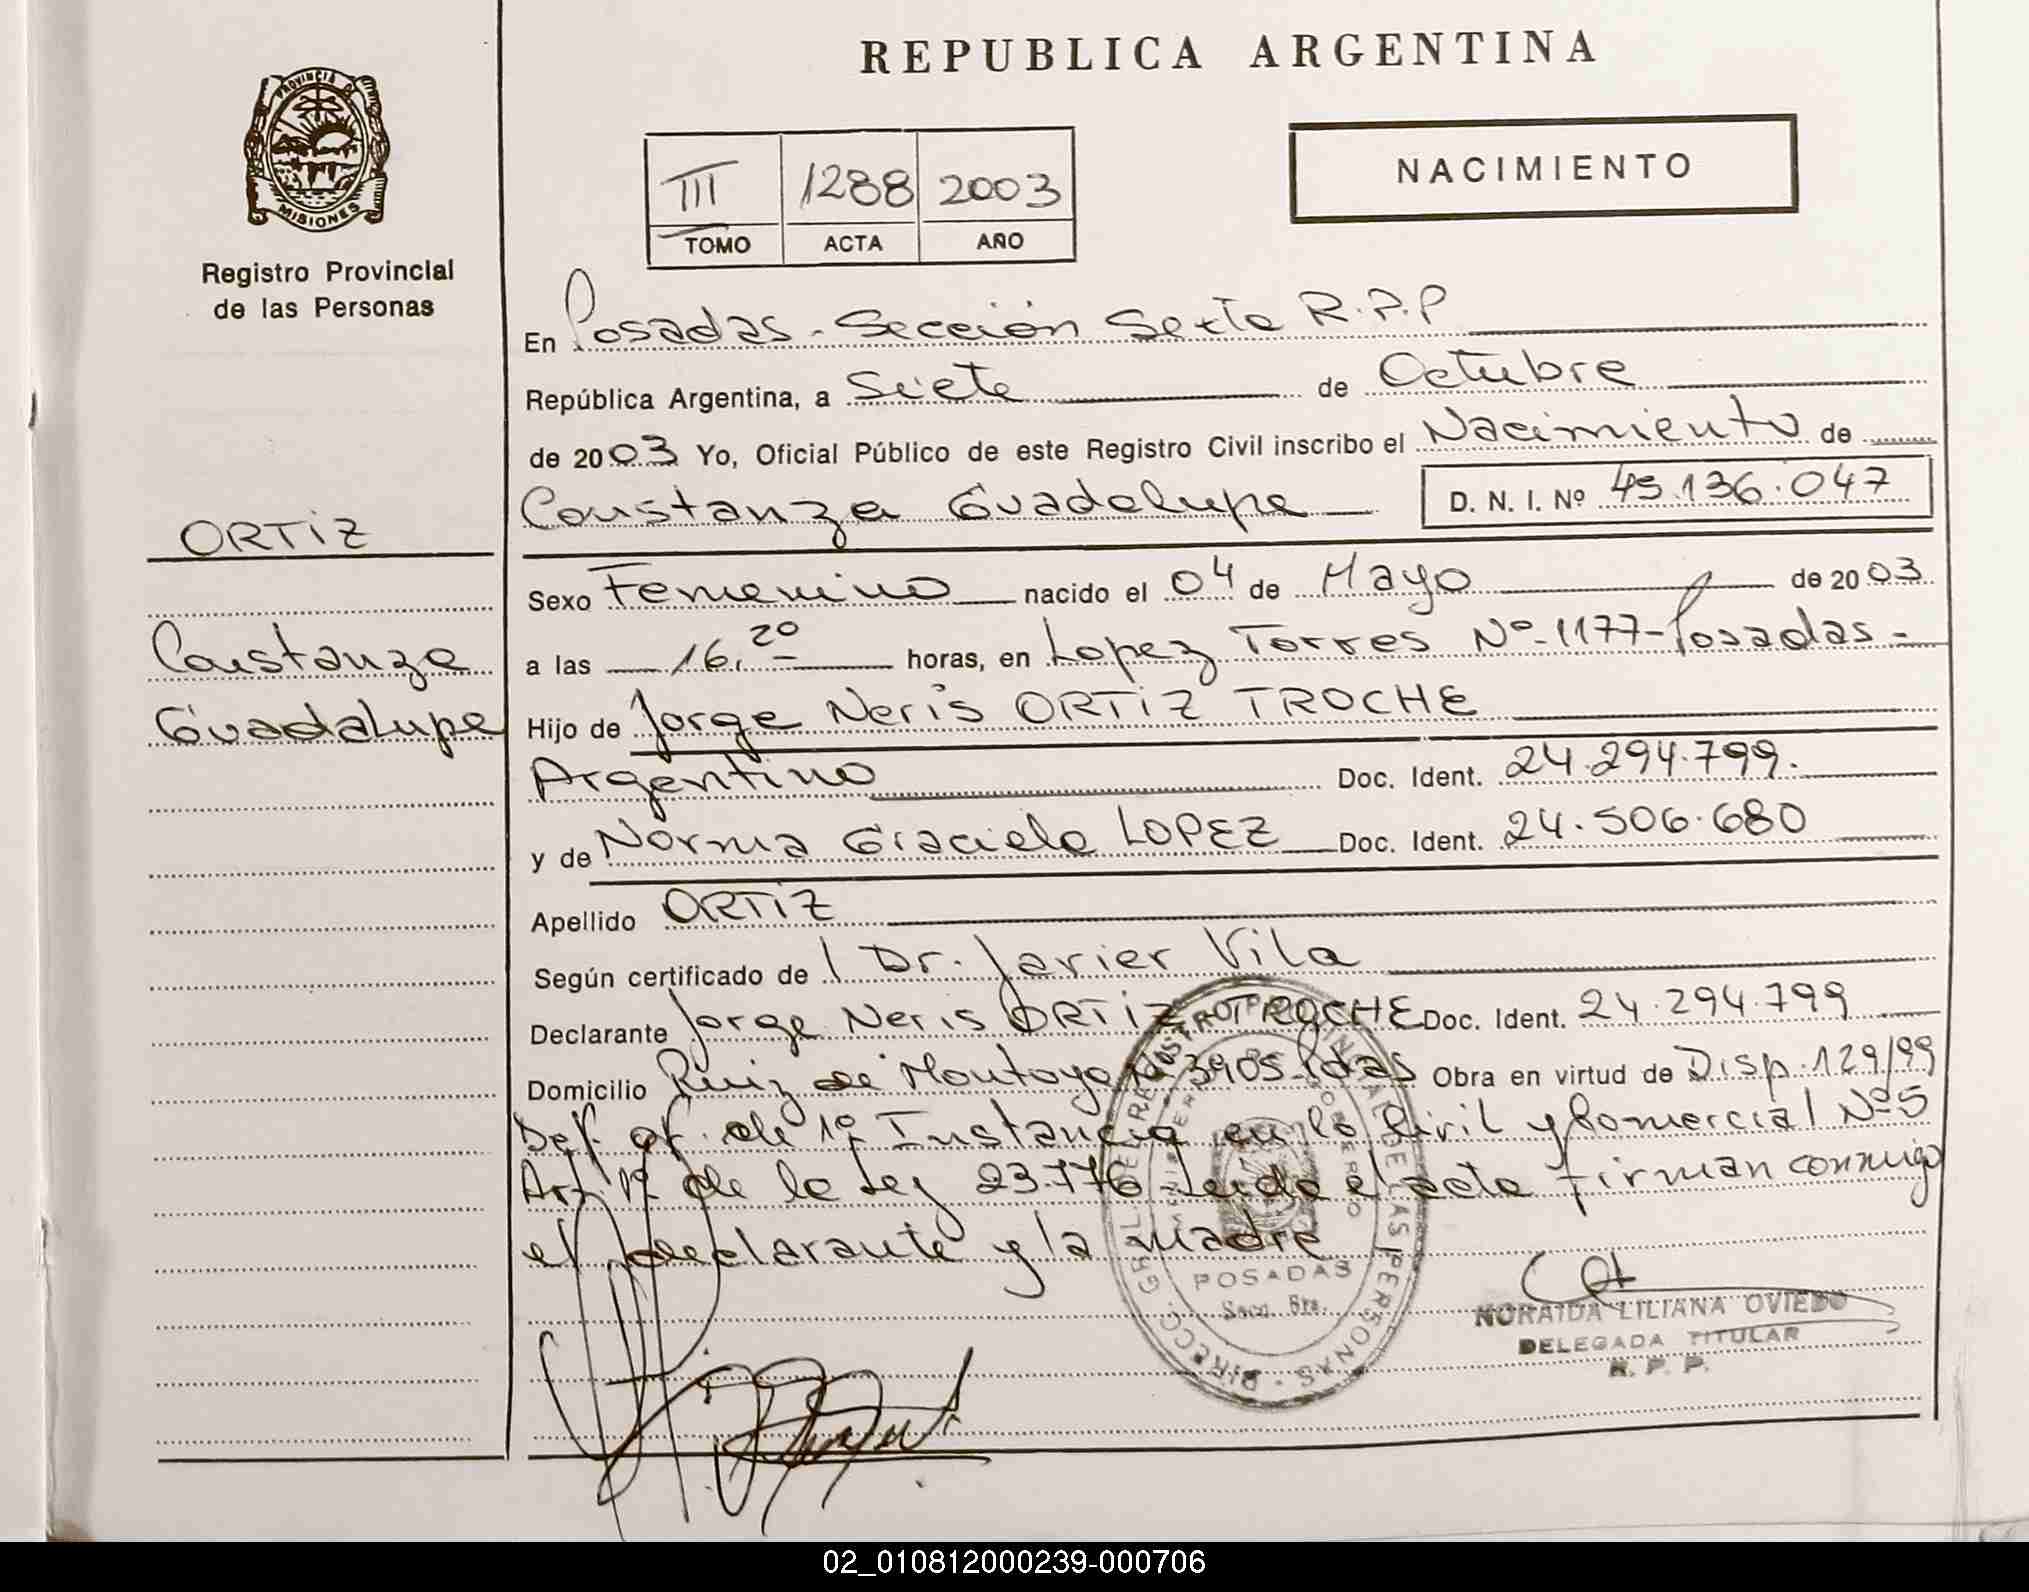 REPUBLICA ARGENTINA
PROVINCIA
MISIONES
Registro Provincial
de las Personas
NACIMIENTO
III 1288 2003
TOMO ACTA AÑO
En Posadas - Sección Sexta R.P.P
República Argentina, a Siete de Octubre
de 2003 Yo, Oficial Público de este Registro Civil inscribo el Nacimiento de
Constanza Guadalupe D. N. I. Nº 45.136.047
ORTIZ
Constanza
Guadalupe
Sexo Femenino nacido el 04 de Mayo de 2003
a las 16.20 horas, en Lopez Torres Nº-1177-Posadas-
Hijo de Jorge Neris ORTIZ TROCHE
Argentino Doc. Ident. 24.294.799.
y de Norma Graciela LOPEZ Doc. Ident. 24.506.680
Apellido ORTIZ
Según certificado de Dr. Javier Vila
Declarante Jorge Neris ORTIZ TROCHE Doc. Ident. 24.294.799
Domicilio Ruiz de Montoya Nº 3905-Pdas Obra en virtud de Disp. 129/99
Def. of. de 1º Instancia en lo Civil y Comercial Nº 5
Art 1º de la Ley 23.776 Leida el acta firman conmigo
el declarante y la madre
DIRECC. GRAL. DEL REGISTRO PROVINCIAL DE LAS PERSONAS
POSADAS
Secc. 6ta.
NORAIDA LILIANA OVIEDO
DELEGADA TITULAR
R. P. P.
02_010812000239-000706